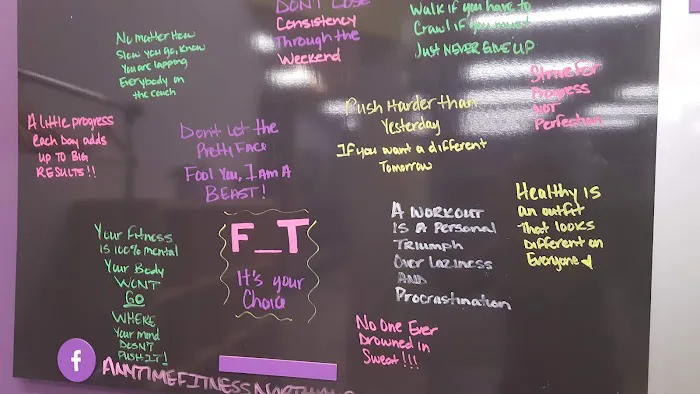 DON'T LOSE
Consistency
Through the
Weekend
Walk if you have to
Crawl if you must
Just NEVER GIVE UP
No Matter How
Slow you go, Know
You are lapping
Everybody on
the couch
Strive For
Progress
NOT
Perfection
Push Harder than
Yesterday
If you want a different
Tomorrow
A little progress
each Day adds
UP TO BIG
RESULTS!!
Don't Let the
Pretty Face
Fool You, I Am A
BEAST!
Healthy IS
an outfit
That looks
Different on
Everyone
A WORKOUT
IS A Personal
TRIUMPH
Over laziness
AND
Procrastination
Your Fitness
IS 100% Mental
Your Body
WONT
GO
WHERE
Your mind
DOESN'T
PUSH IT!
F_T
It's your
Choice
No One Ever
Drowned in
Sweat!!!
f